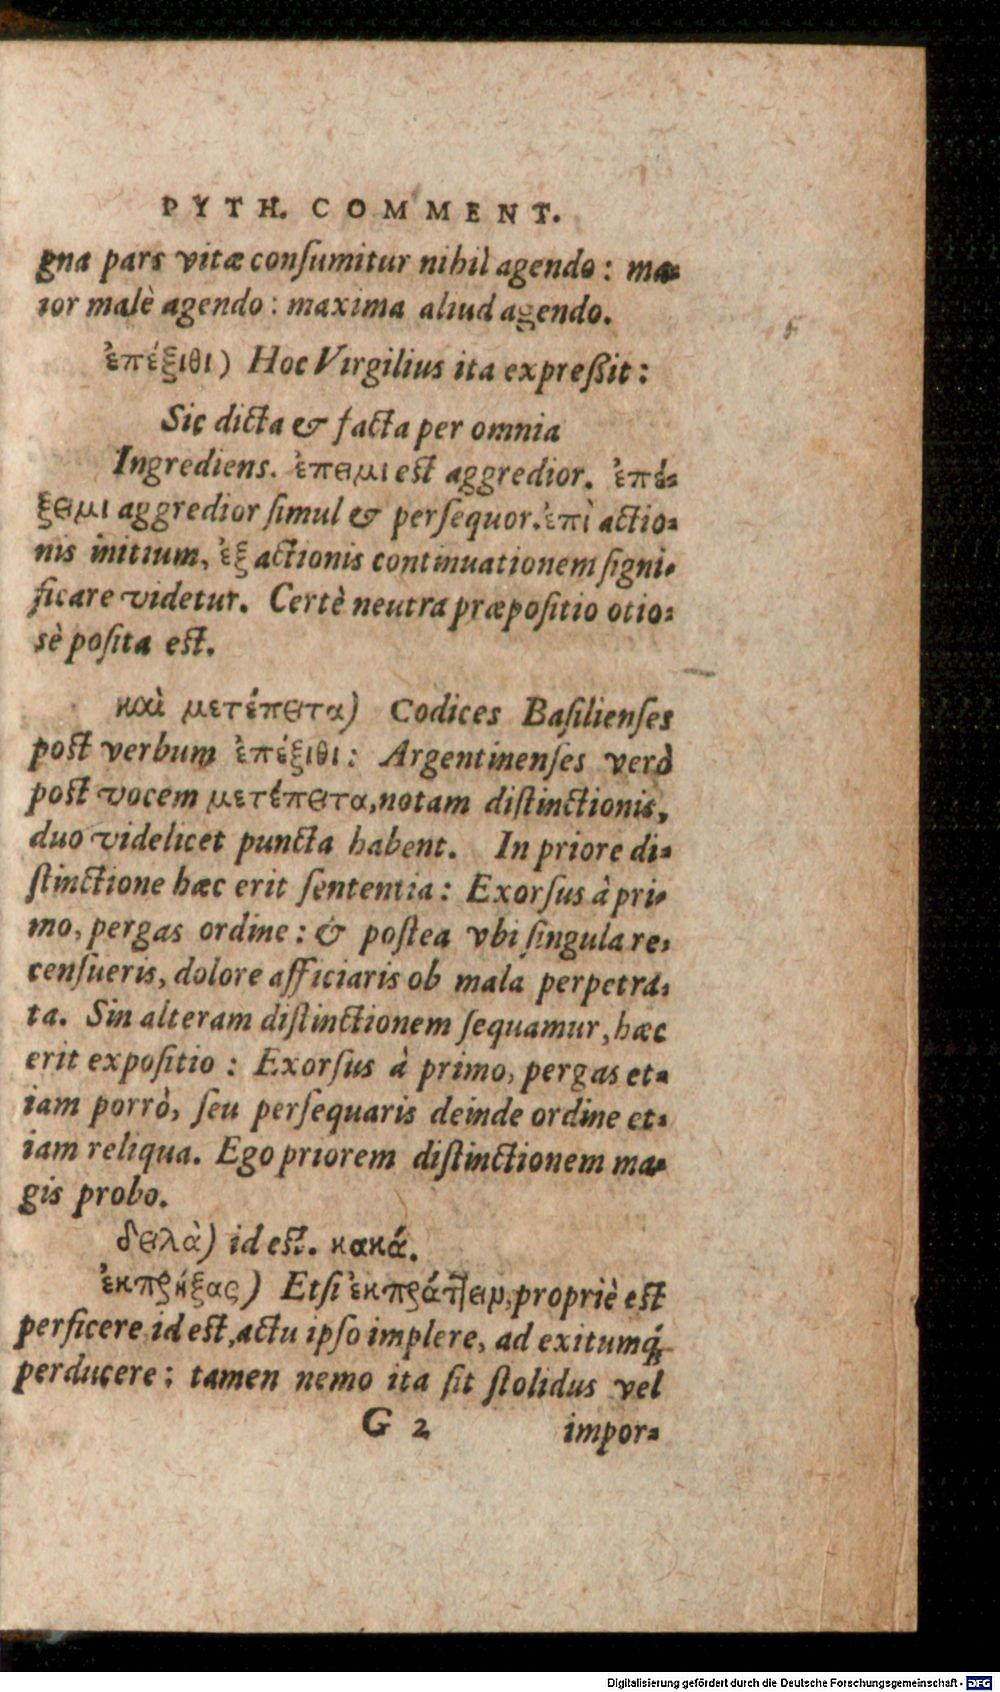 PYTH. COMMENT.
gna pars vitæ conſumitur nihil agendo: ma-
ior malè agendo: maxima aliud agendo.
ἐπέξιθι) Hoc Virgilius ita expreßit:
Sic dicta & facta per omnia
Ingrediens. ἔπειμι est aggredior. ἐπέ-
ξειμι aggredior ſimul & perſequor. ἐπὶ actio-
nis initium, ἐξ actionis continuationem ſigni-
ficare videtur. Certè neutra præpoſitio otio-
sè poſita est.
καὶ μετέπειτα) Codices Baſilienſes
post verbum ἐπέξιθι: Argentinenſes verò
post vocem μετέπειτα, notam diſtinctionis,
duo videlicet puncta habent. In priore di-
ſtinctione hæc erit ſententia: Exorſus à pri-
mo, pergas ordine: & poſtea vbi ſingula re-
cenſueris, dolore afficiaris ob mala perpetra-
ta. Sin alteram diſtinctionem ſequamur, hæc
erit expoſitio: Exorſus à primo, pergas et-
iam porrò, ſeu perſequaris deinde ordine et-
iam reliqua. Ego priorem diſtinctionem ma-
gis probo.
δειλὰ) id est. κακά.
ἐκπρήξας) Etſi ἐκπράττειν, propriè est
perficere id est, actu ipſo implere, ad exitumq́;
perducere; tamen nemo ita ſit ſtolidus vel
G 2 impor-
Digitalisierung gefördert durch die Deutsche Forschungsgemeinschaft - DFG